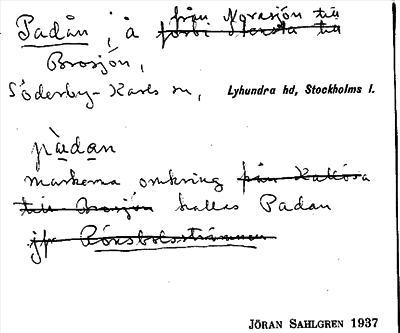 från Norasjön till
Padån, å förbi Norsta till
Brosjön,
Söderby-Karls sn, Lyhundra hd, Stockholms l.
pàdan
markerna omkring från Kallösa
till Brosjön kallas Padan
jfr Rörsbolsströmmen
JÖRAN SAHLGREN 1937